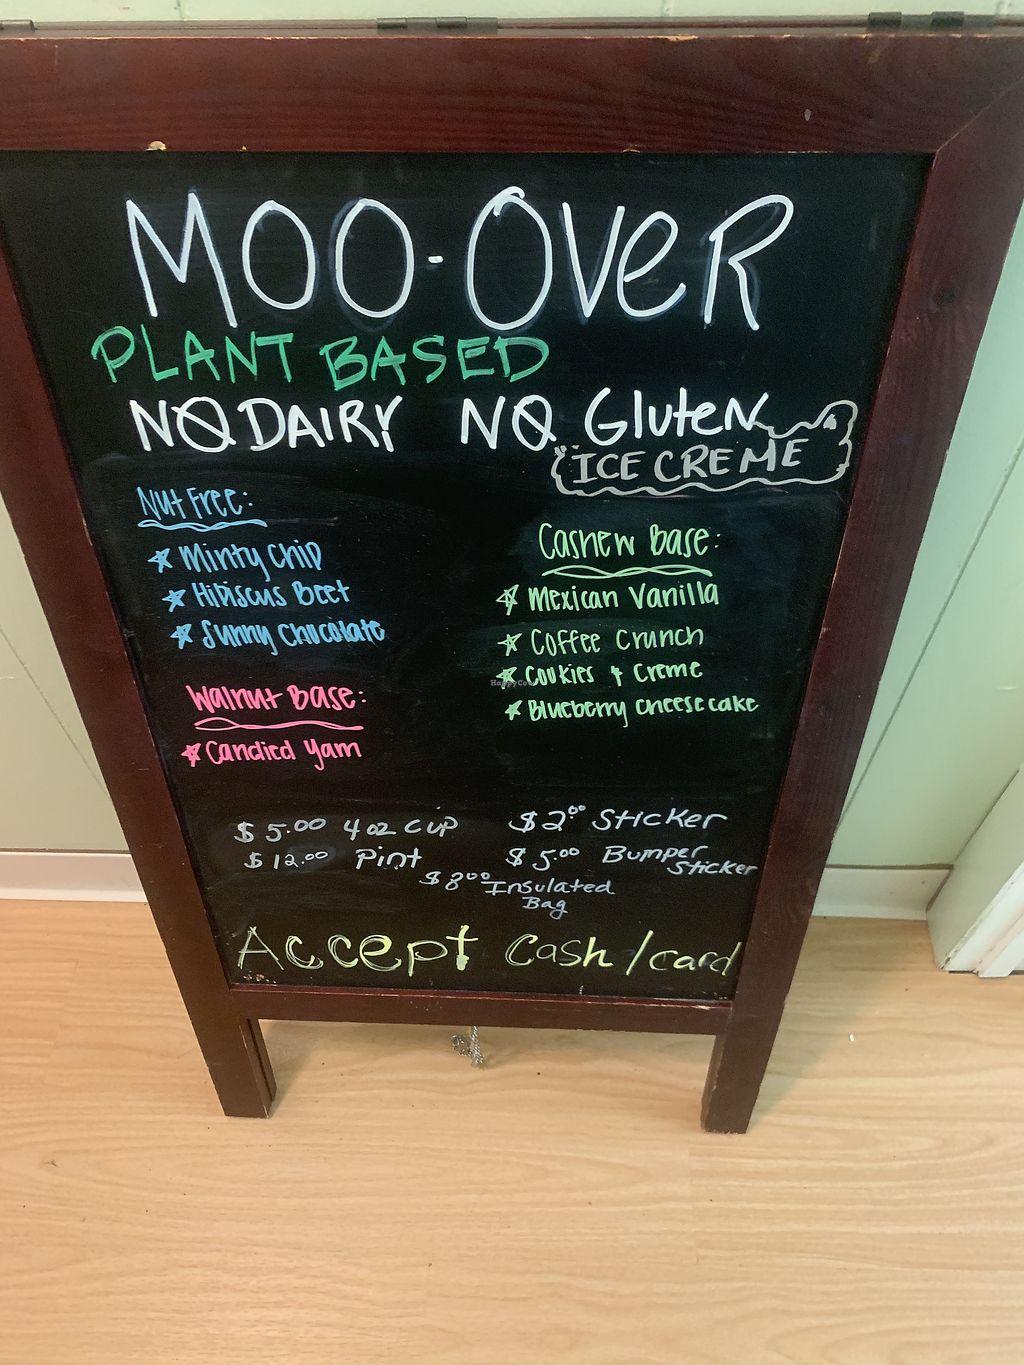 MOO-OVER
PLANT BASED
NO DAIRY NO Gluten
ICE CREME
Nut Free:
Minty Chip
Hibiscus Beet
Sunny Chocolate
Walnut Base:
Candied Yam
Cashew Base:
Mexican Vanilla
Coffee Crunch
Cookies & Creme
Blueberry Cheesecake
$5.00 4oz Cup
$12.00 Pint
$2.00 Sticker
$5.00 Bumper
Sticker
$8.00 Insulated
Bag
Accept Cash/card